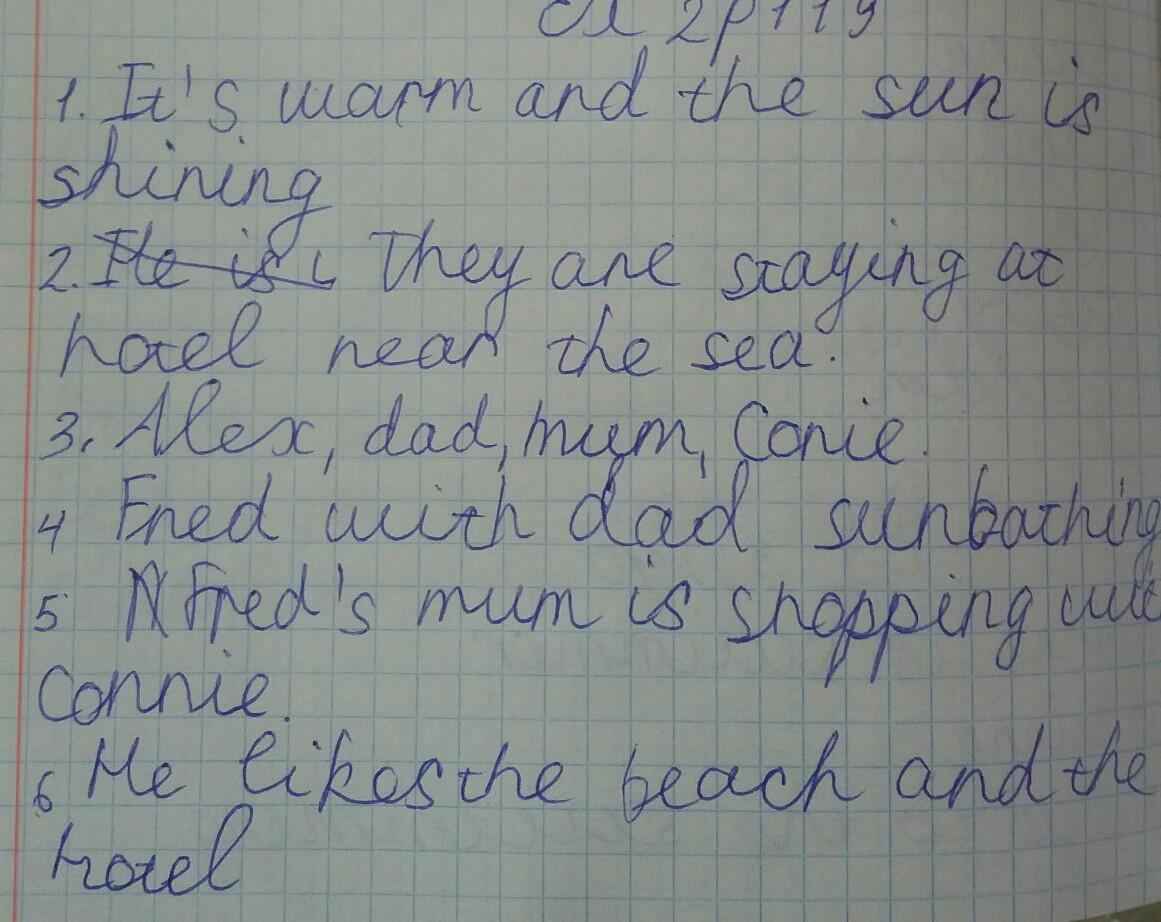 Ex 2 p 119
1. It's warm and the sun is
shining
2. They are staying at
hotel near the sea.
3. Alex, dad, mum, Conie.
4 Fred with dad sunbathing
5 Fred's mum is shopping
Connie.
6 He likes the beach and the
hotel